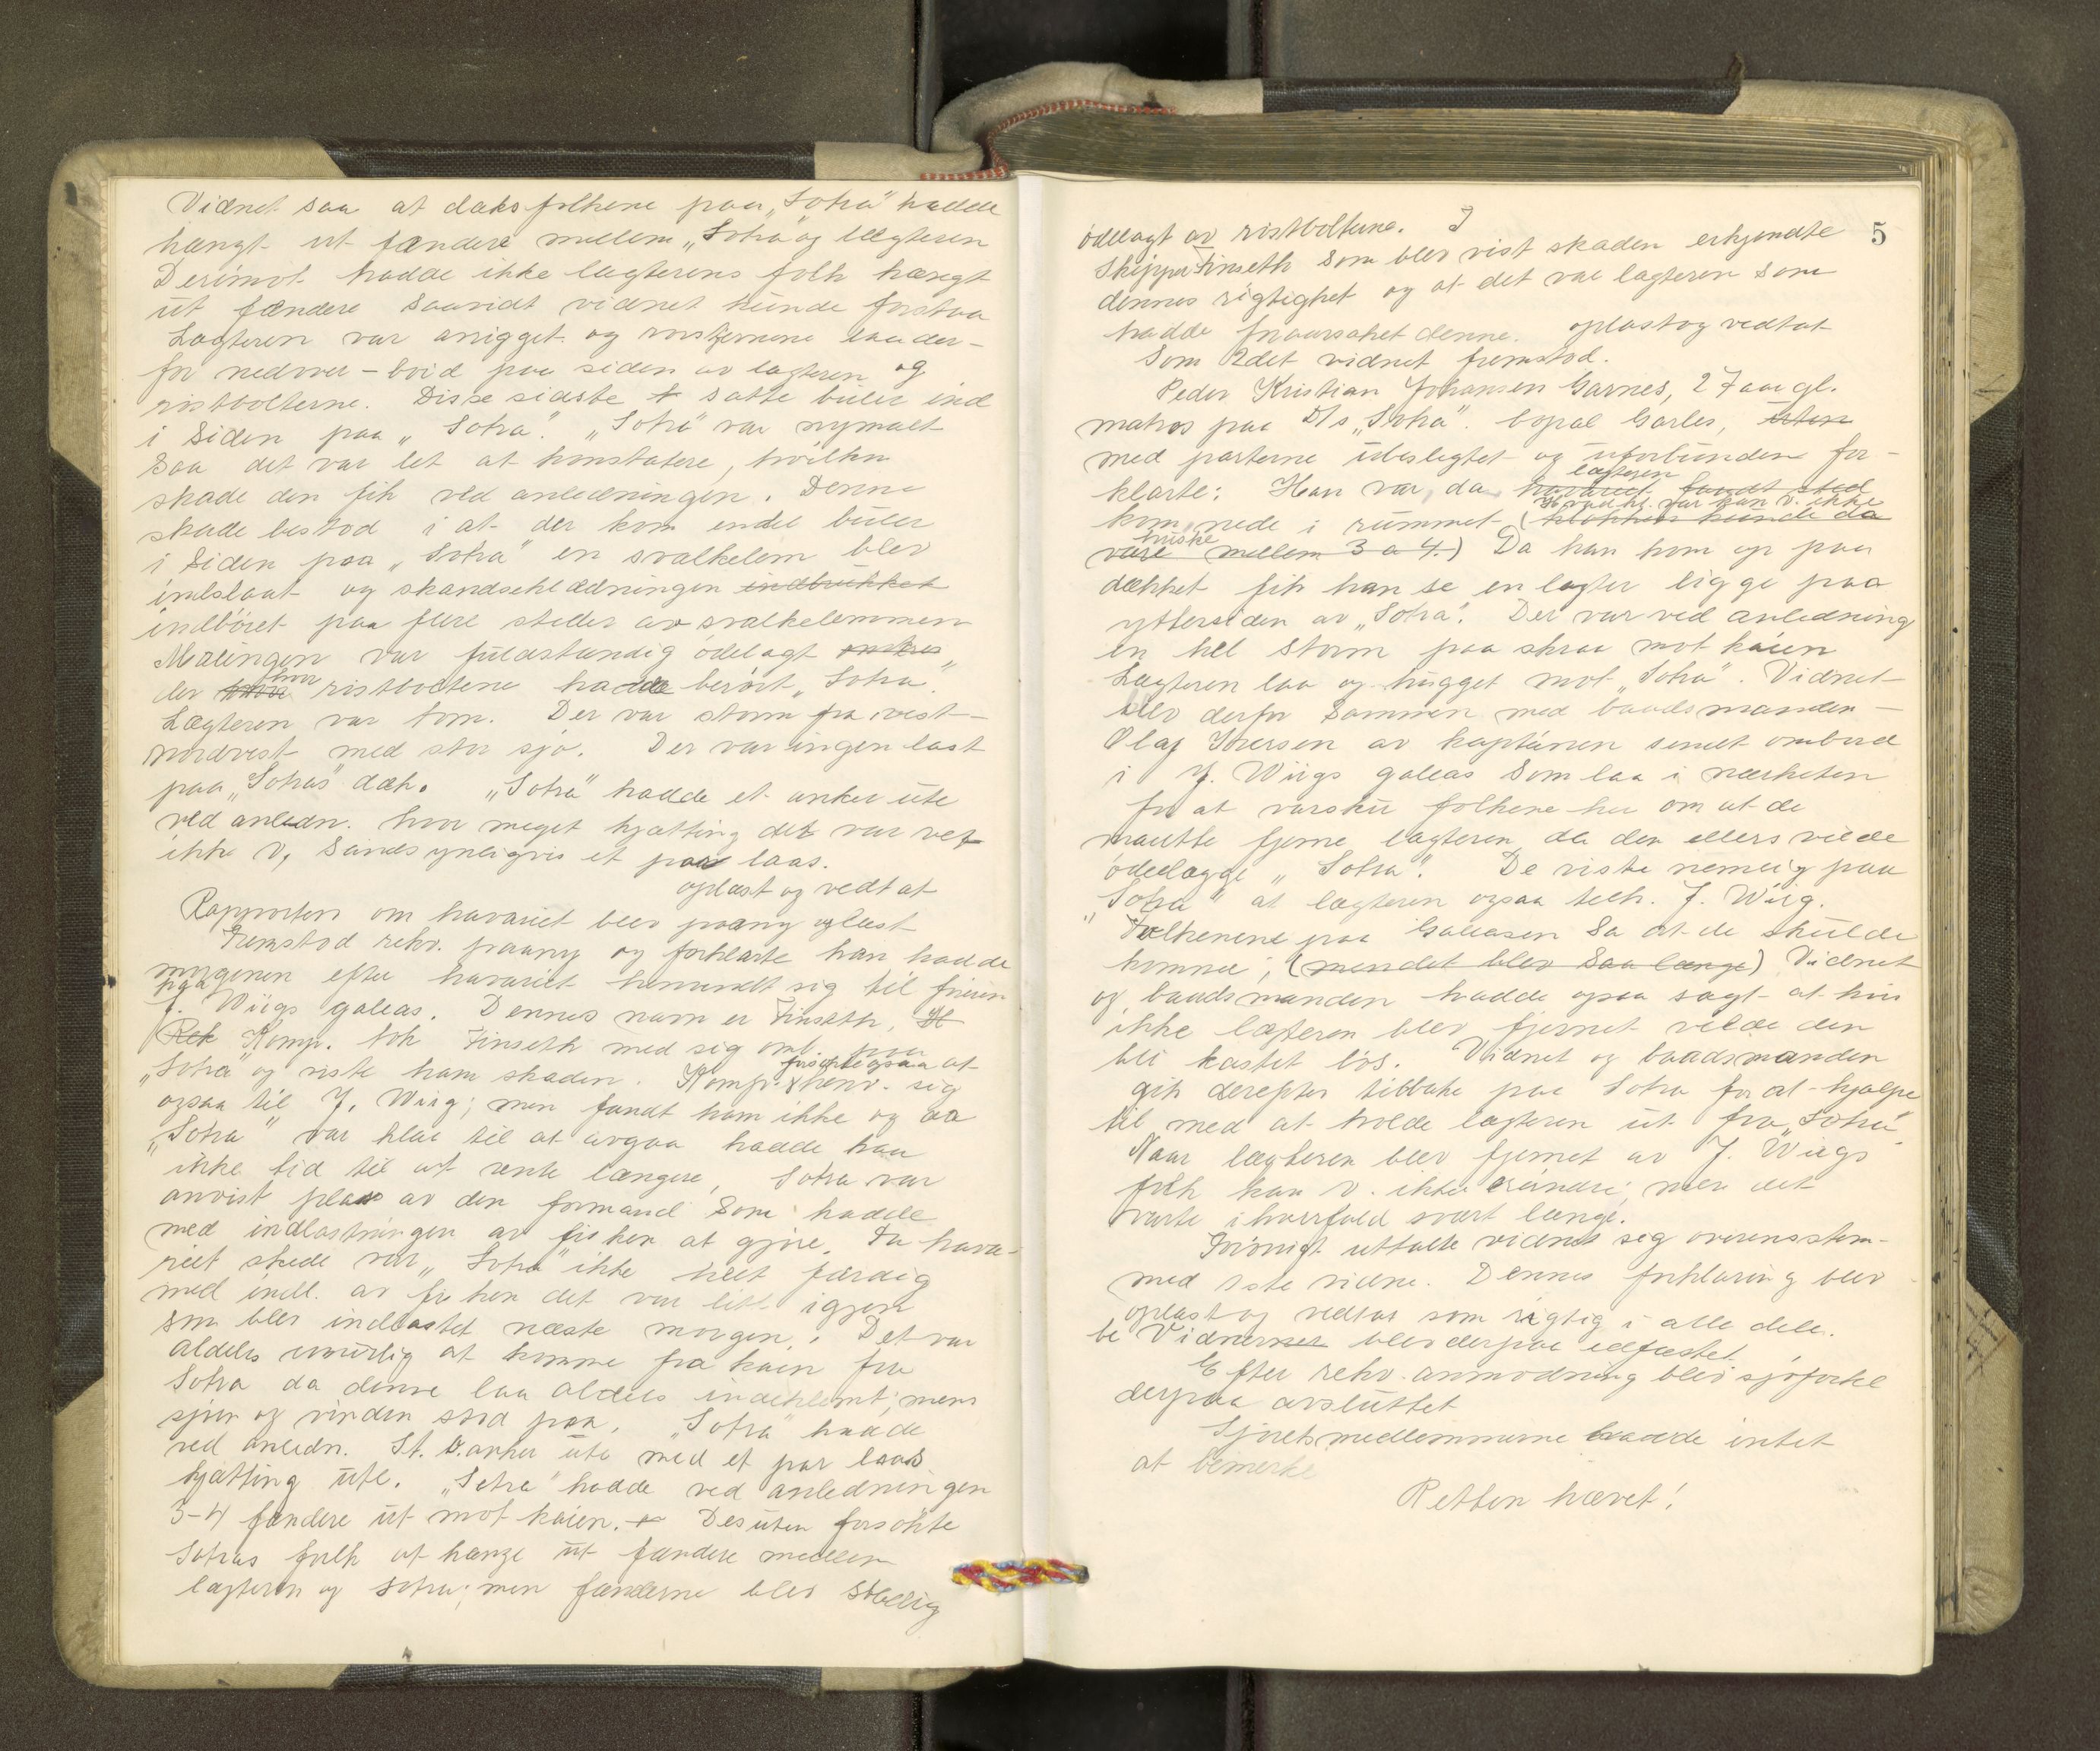 Vidnet saa at daksfolkene paa „Sotra" hadde
hængt ut fændere mellem „Sotra" og lægteren
Derimot hadde ikke lægterens folk hængt
ut fændere saavidt vidnet kunde forstaa
Lægteren var arrigget og laa der-
for nedover - paa siden av lægteren og
ristbolterne. Disse sidste satte buler ind
i siden paa „Sotra". „Sotra" var nymalt
saa det var let at konstatere, hvilken
skade den fik ved anledningen. Denne
skade bestod i at der kom endel buler
i siden paa „Sotra" en svalkelem blev
indslaat og skandseklædningen indbukket
indböiet paa flere steder av svalkelemmen
Malingen var fuldstændig ödelagt
der hvor ristboltene hadde berört „Sotra".
Lægteren var tom. Der var storm fra vest-
nordvest med stor sjö. Der var ingen last
paa „Sotras" dæk. „Sotra" hadde et anker ute
ved anledn. hvor meget kjætting det var vet
ikke v, sandsynligvis et par laas.
oplæst og vedtat
Rapporten om havariet blev paany oplæst
Fremstod rekv. paany og forklarte han hadde
morgenen efter havariet henvendt sig til
paa J. Wiigs galeas. Dennes navn er Finseth,
Rek Komp. tok Finseth med sig omb. paa
„Sotra" og viste ham skaden. Komp. forsökte ogsaa at henv. sig
ogsaa til J. Wiig; men fandt ham ikke og da
„Sotra" var klar til at avgaa hadde han
ikke tid til at vente længere, Sotra var
anvist plass av den formand som hadde
med indlastningen av fisken at gjöre. Da hava-
riet skede var „Sotra" ikke helt færdig
med indl. av fisken det var litt igjen
som blev indlastet næste morgen. Det var
aldeles umulig at komme fra kaien fra
Sotra da denne laa aldeles indeklemt, mens
sjöen og vinden stod paa. „Sotra" hadde
ved anledn. St. B. anker ute med et par laas
kjætting ute. „Sotra" hadde ved anledningen
3-4 fændere ut mot kaien. Desuten forsökte
Sotras folk at hænge ut fændere mellem
lægteren og Sotra; men fænderne blev stadig
5
ödelagt av ristboltene. I
Skipper Finseth som blev vist skaden erkjendte
dennes rigtighet og at det var lægteren som
hadde foraarsaket denne. oplæst og vedtat
Som 2det vidnet fremstod.
Peder Kristian Johansen Garnes, 27 aar gl.
matros paa D/s „Sotra". bopæl Garnes, uten
med parterne ubeslegtet og uforbunden for-
klarte: Han var, da lægteren havariet fandt sted
kom, nede i rummet (Hvad kl. var kan v. ikke huske klokken kunde da
være mellem 3 a 4.) Da han kom op paa
dækket fik han se en lægter ligge paa
yttersiden av „Sotra". Der var ved anledning
en hel storm paa skraa mot kaien
Lægteren laa og hugget mot „Sotra". Vidnet
blev derfor sammen med baadsmanden
Olaf Iversen av kaptainen sendt ombord
i J. Wiigs galeas som laa i nærheten
for at varsku folkene her om at de
maatte fjerne lægteren da den ellers vilde
ödelægge „Sotra". De viste nemlig paa
„Sotra" at lægteren ogsaa tilh. J. Wiig.
Folkenene paa Galeasen sa at de skulde
komme, (men det blev saa længe) Vidnet
og baadsmanden hadde ogsaa sagt at hvis
ikke lægteren blev fjernet vilde den
bli kastet lös. Vidnet og baadsmanden
gik derefter tilbake paa Sotra for at hjælpe
til med at holde lægteren ut fra „Sotra".
Naar lægteren blev fjernet av J. Wiigs
folk kan v. ikke erindre, men det
varte i hvertfald svært længe.
Forövrigt uttalte vidnet sig overensstem-
med 1ste vidne. Dennes forklaring blev
oplæst og vedtat som rigtig i alle dele.
Vidnerne blev derpaa edfæstet.
Efter rekv. anmodning blev sjöforkl
derpaa avsluttet
Sjöretsmedlemmerne havde intet
at bemerke
Retten hævet!